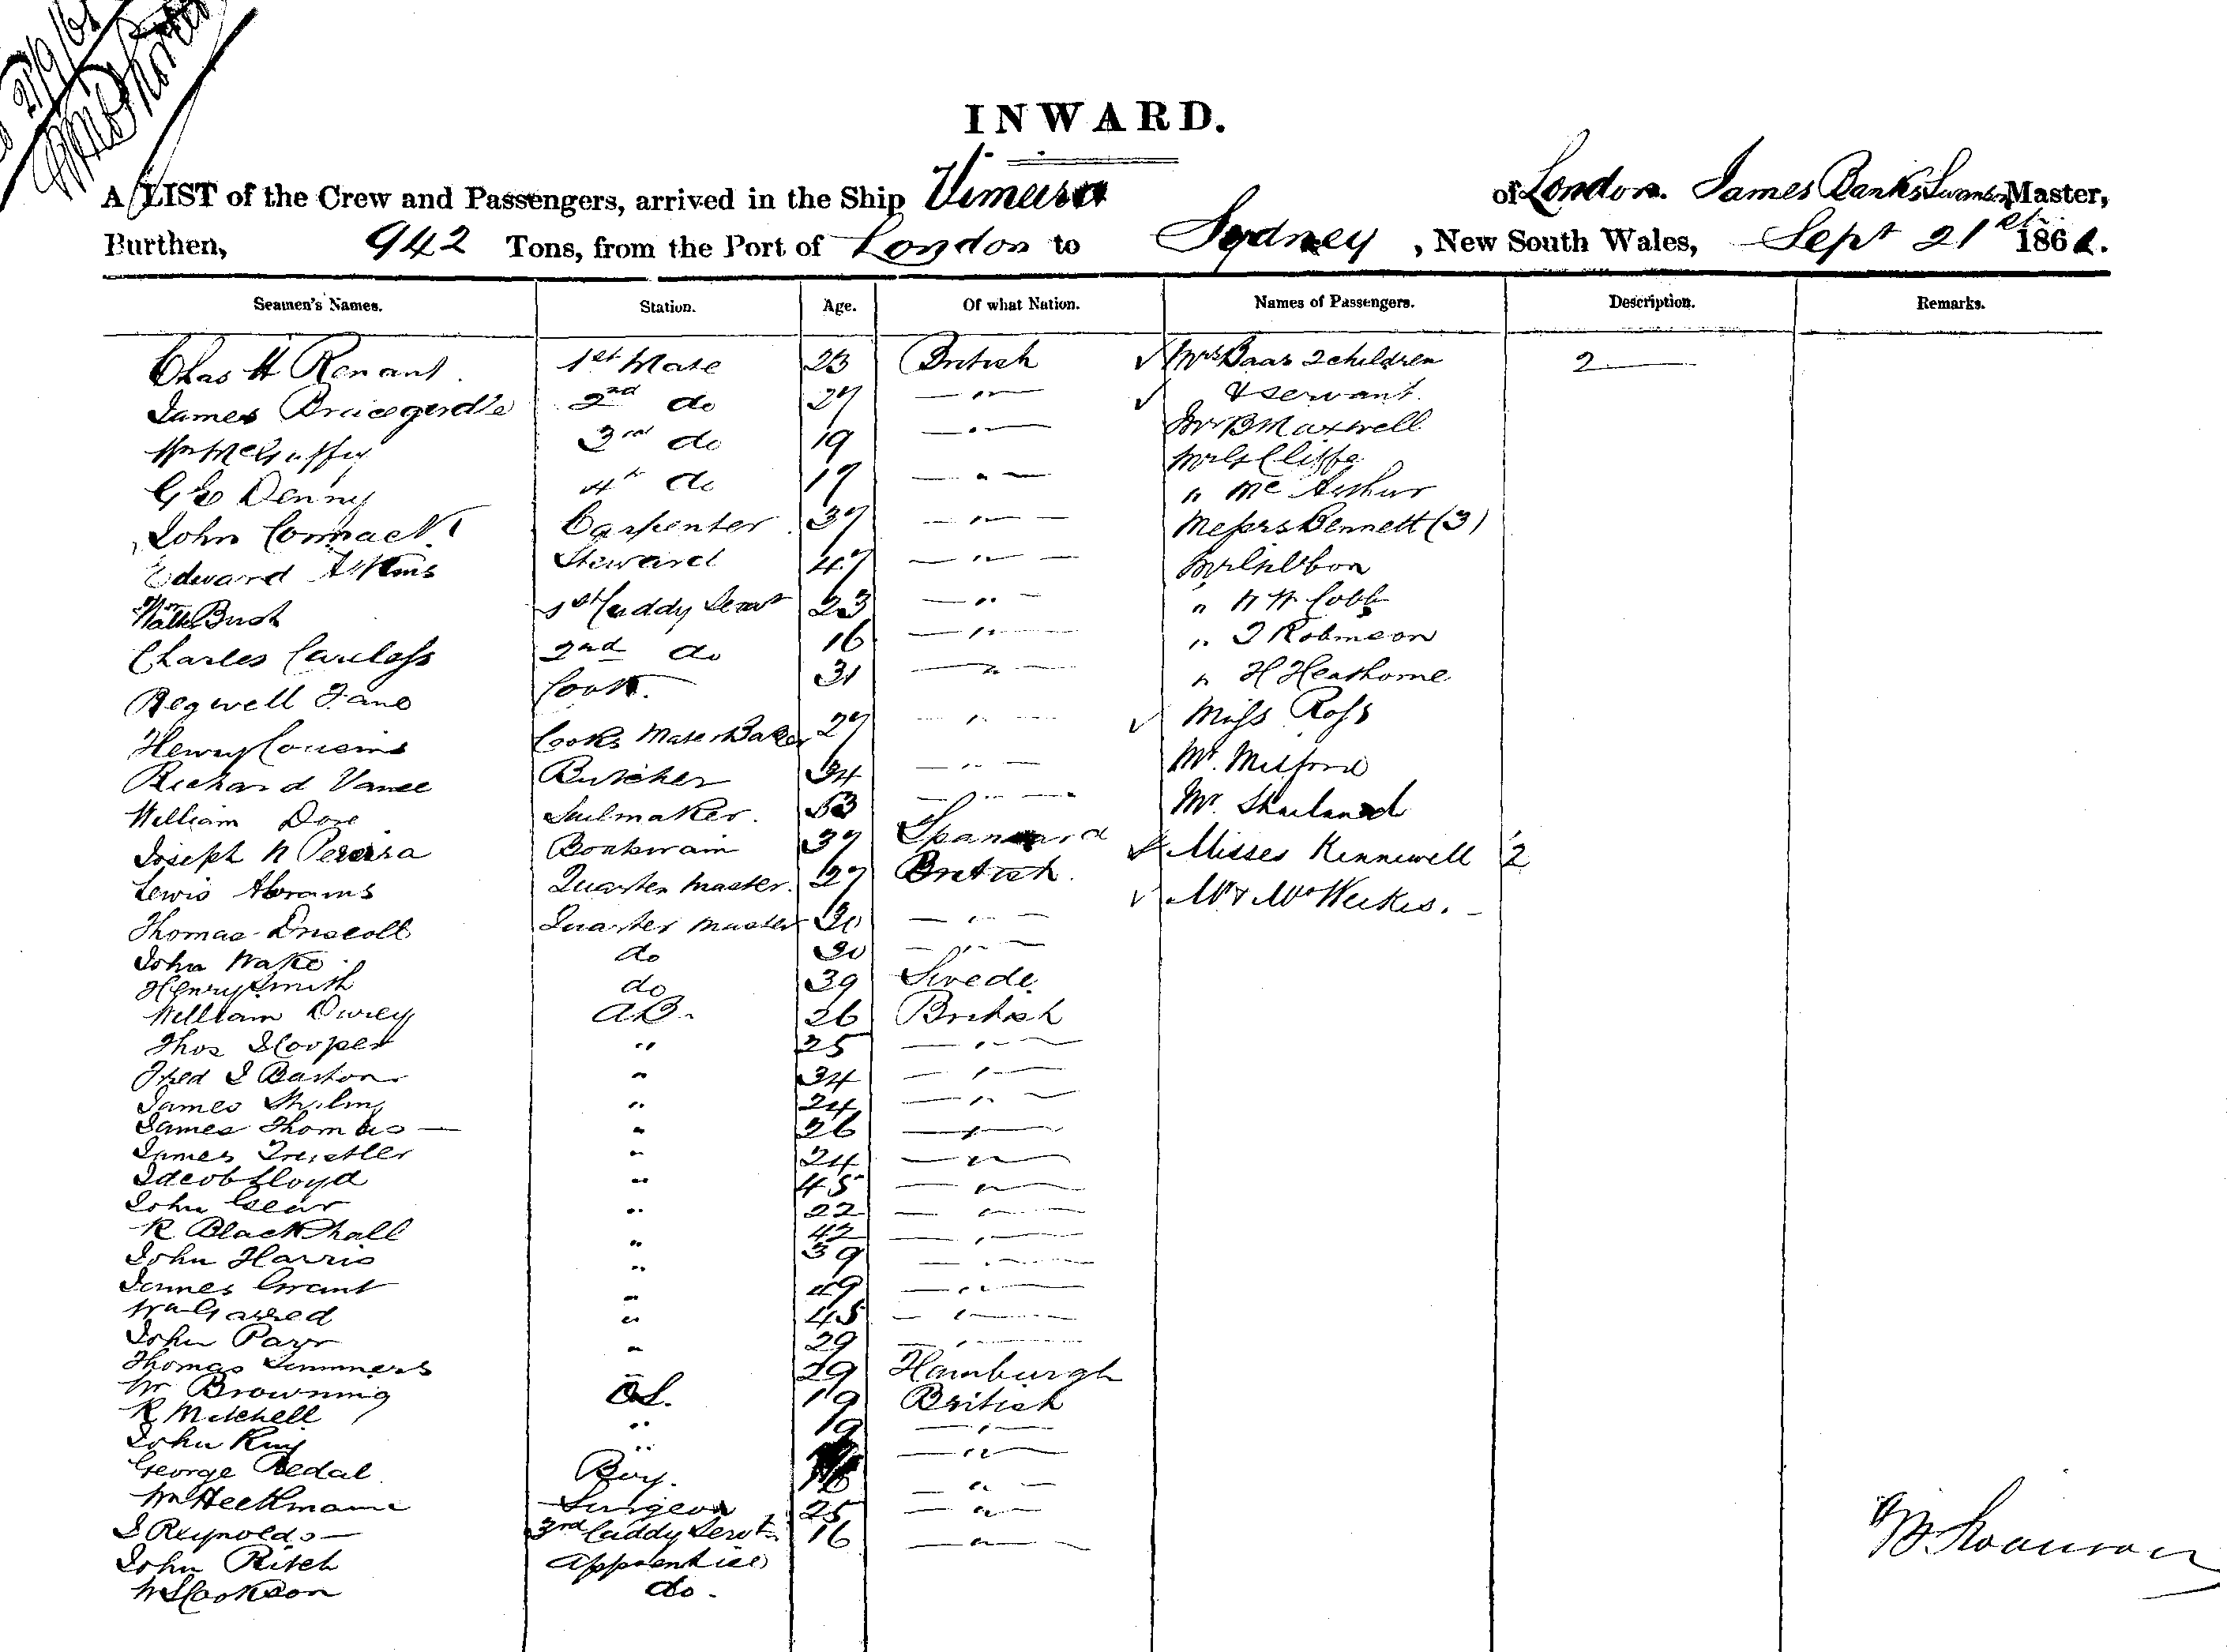 21/9/61
INWARD.
A LIST of the Crew and Passengers, arrived in the Ship Vimeira of London. James Banks Swanson Master,
Burthen, 942 Tons, from the Port of London to Sydney, New South Wales, Sept 21st 1861.
Seamen's Names. Station. Age. Of what Nation. Names of Passengers. Description. Remarks.
Chas H Renant. 1st Mate 23 British Mrs Baas 2 children 2
James Bracegirdle 2nd do 27 " & Servant.
Wm McGuffey 3rd do 19 " Mr B Maxwell
Geo Denny 4th do 17 " Mr G Cliffe
John Cormack Carpenter 37 " " Mc Arthur
Edward Atkins Steward 47 " Messrs Bennett (3)
Walter Bush 1st Cuddy Servt 23 " Mr
Charles Careless 2nd do 16 " " Cobb
Regwell Fane Cook. 31 " " J Robinson
Henry Cousins Cooks Mate & Baker 27 " " H Heathorne
Richard Vance Butcher 34 " Miss Ross
William Dore Sailmaker. 53 " Mr. Milford
Joseph N Pereira Boatswain 37 Spaniard Mr. Sharland
Lewis Abrams Quarter Master. 27 British. Misses Kennewell 2
Thomas Driscoll Quarter Master 30 " Mr & Mrs Weekes.
John Wake do 30 "
Henry Smith do 39 Swede
William Durey AB. 26 British
Thos Hooper " 25 "
Fred J Barton " 34 "
James " 24 "
James Thomas " 26 "
James Treistler " 24 "
Jacob Lloyd " 45 "
John Gear " 22 "
R Blackhall " 42 "
John Harris " 39 "
James Grant " 49 "
Wm Garred " 45 "
John Parr " 29 "
Thomas Simmers " 29 Hamburgh
Wm Browning OS. 19 British
R Mitchell " 19 "
John King " "
George Bedal Boy. 16 "
Wm Heckmann Surgeon 25 "
J Reynolds 3rd Cuddy Servt 16 "
John Ritch Apprentice
W S Cookson do.
J B Swanson